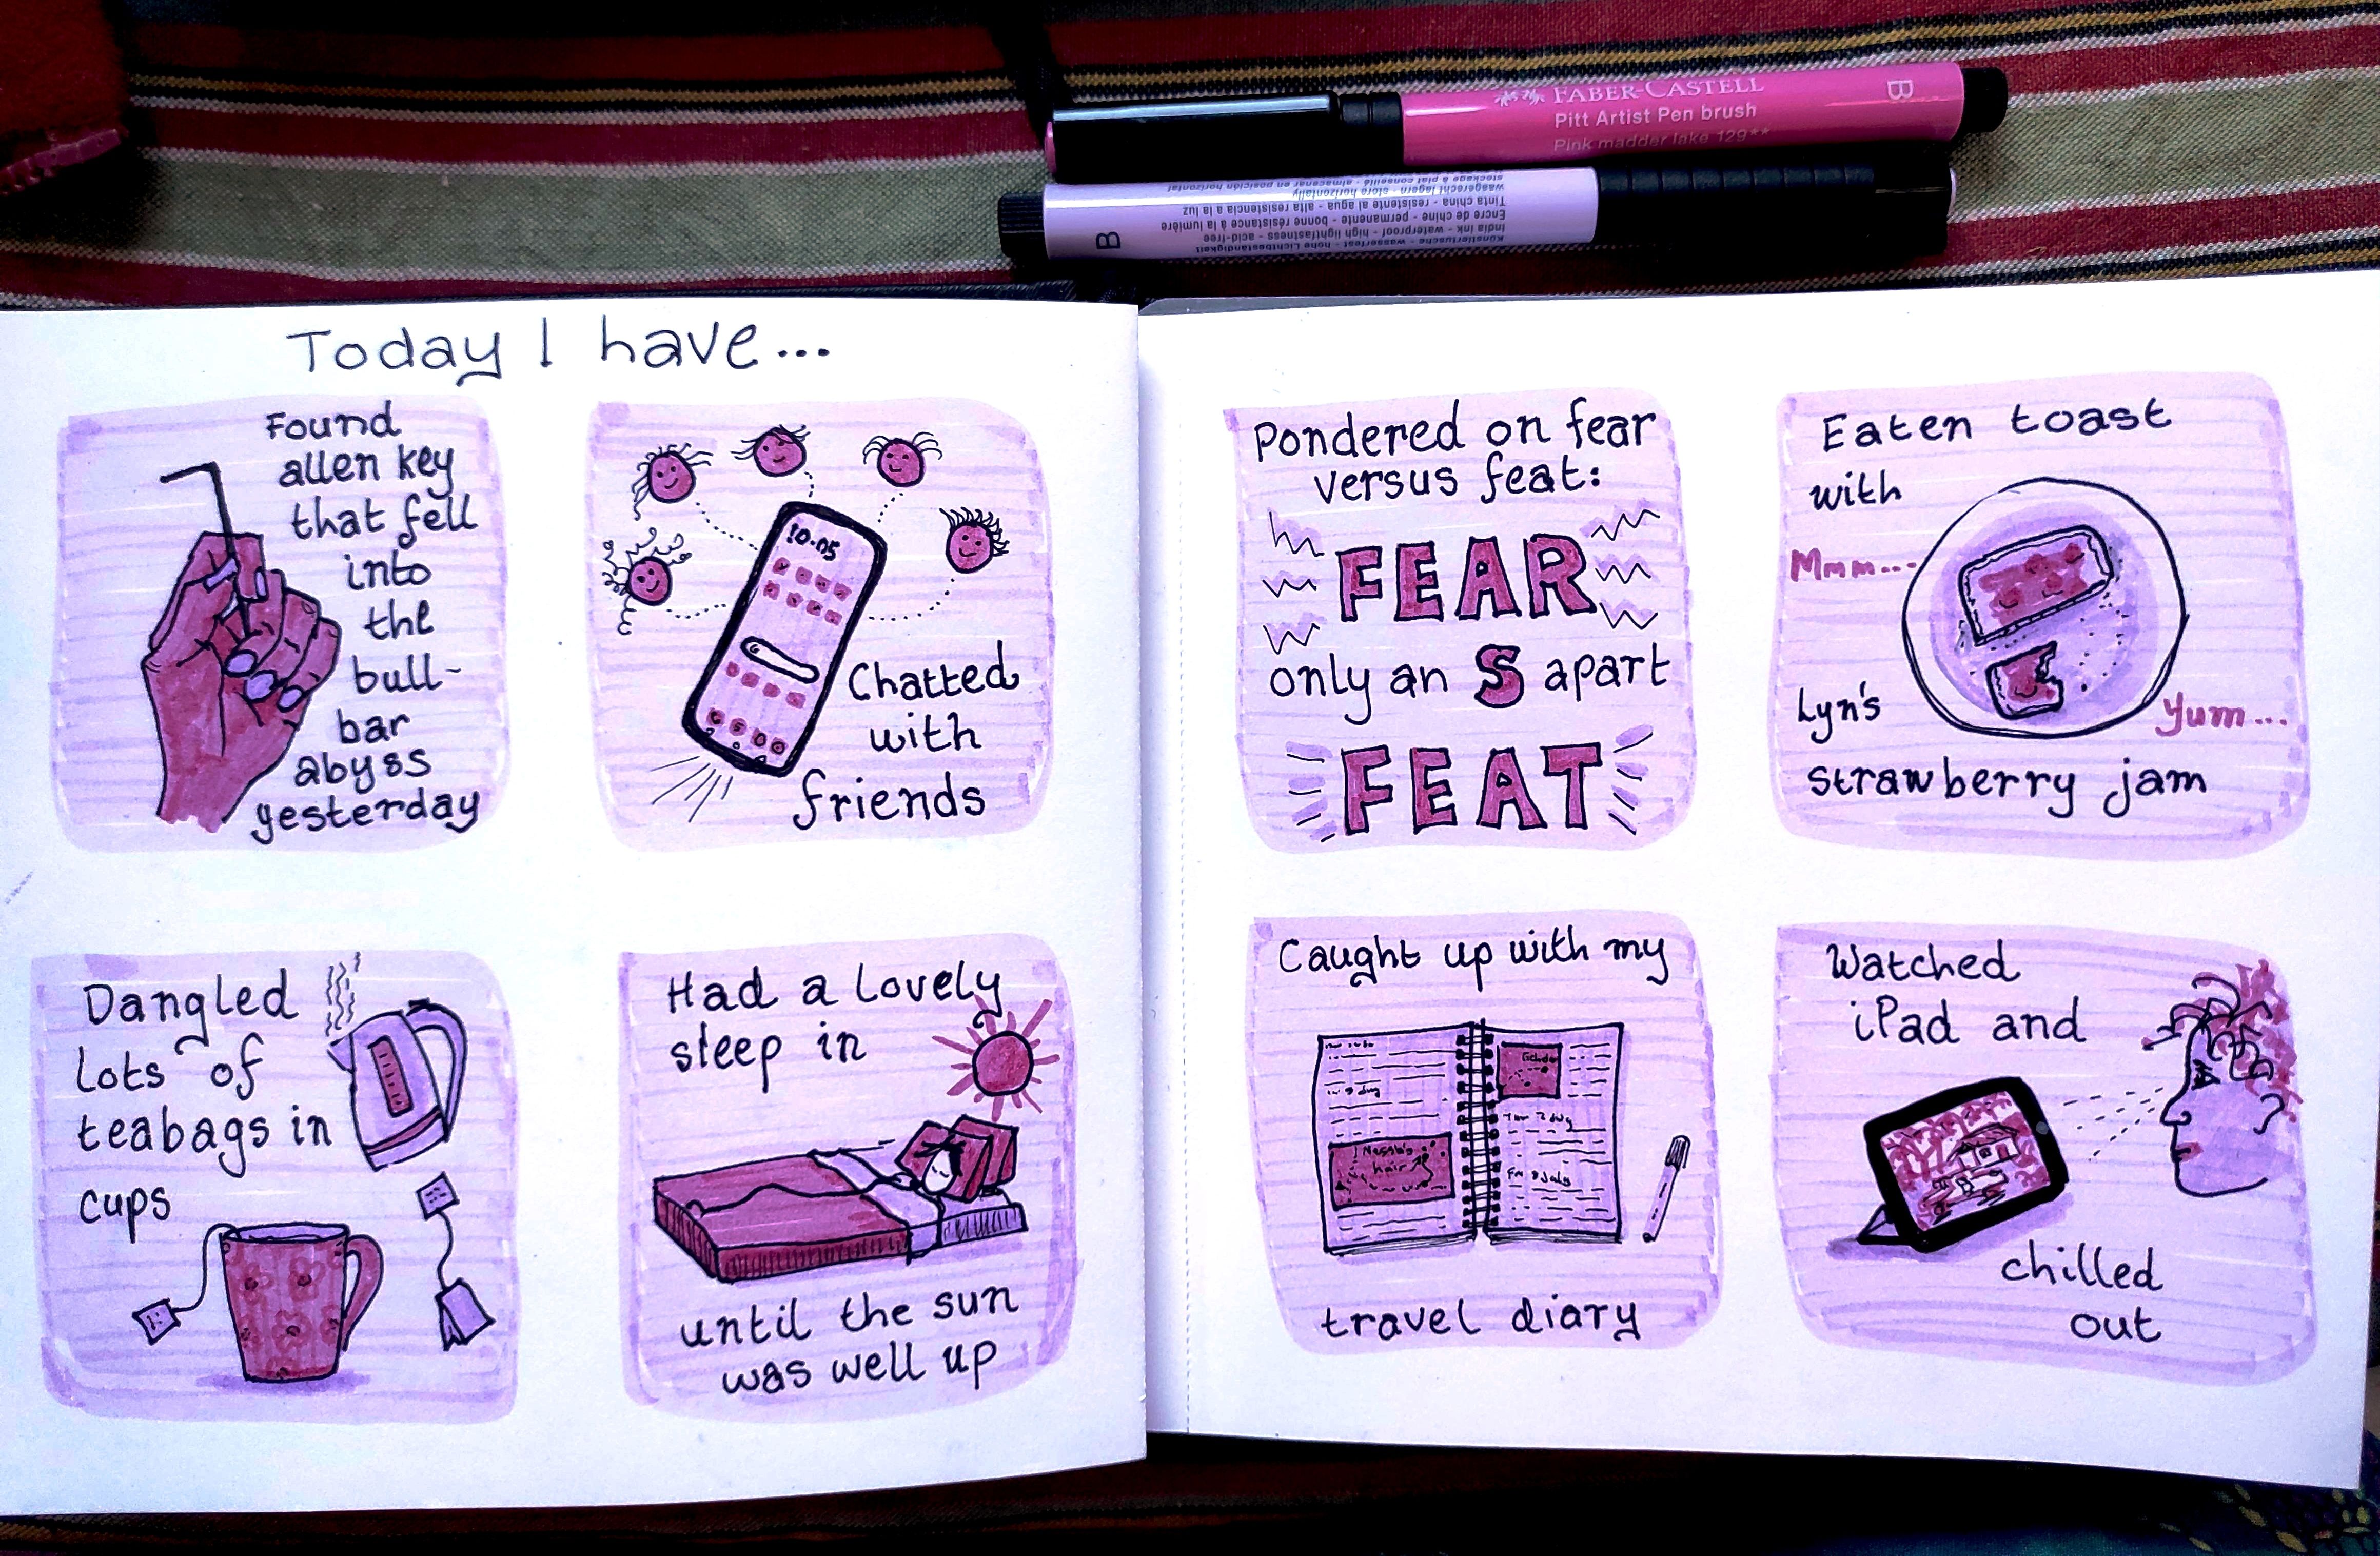 FABER-CASTELL
Pitt Artist Pen brush
Pink madder lake 129**
B
B
stockage à plat conseillé - almacenar en posición horizontal
wasgerecht lagern - store horizontally
Tinta china - resistente al agua - alta resistencia a la luz
Encre de chine - permanente - bonne résistance à la lumière
India ink - waterproof - high lightfastness - acid-free
Künstlertusche - wasserfest - hohe Lichtbeständigkeit
Today I have...
Found
allen key
that fell
into
the
bull-
bar
abyss
yesterday
10.05
Chatted
with
friends
Dangled
lots of
teabags in
cups
Had a lovely
sleep in
until the sun
was well up
Pondered on fear
versus feat:
FEAR
only an S apart
FEAT
Eaten toast
with
Mmm...
Lyn's
Yum...
strawberry jam
Caught up with my
hair
travel diary
Watched
iPad and
chilled
out